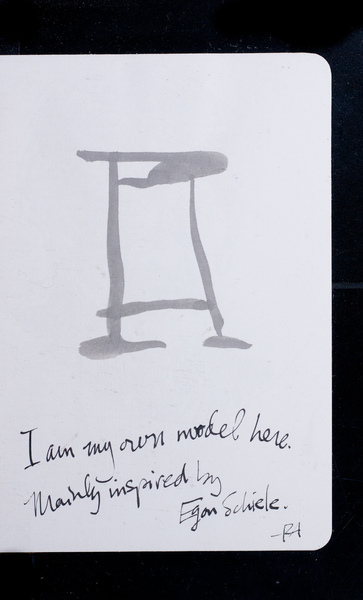 I am my own model here.
Mainly inspired by
Egon Schiele.
-RH